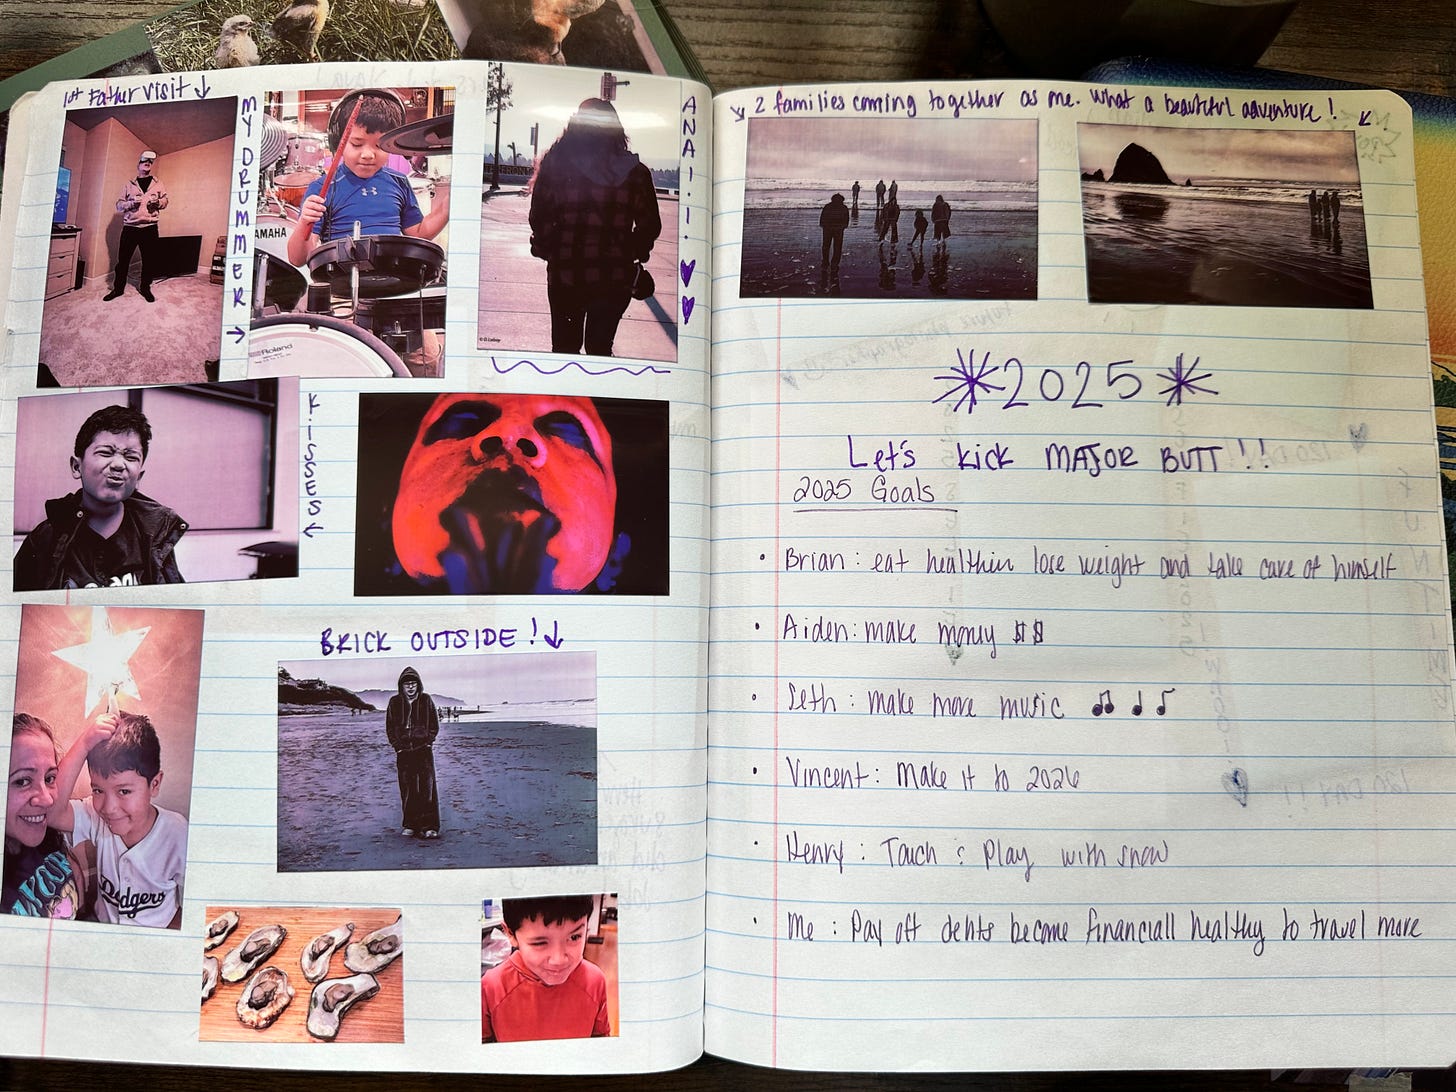 1st Father Visit ↓
MY DRUMMER →
YAMAHA
Roland
ANA!.!.
KISSES ←
BRICK OUTSIDE! ↓
Dodgers
↘ 2 families coming together as me. What a beautiful adventure! ↙
2025
Let's kick MAJOR BUTT!!
2025 Goals
• Brian: eat healthier lose weight and take care of himself
• Aiden: make money $$
• Seth: make more music
• Vincent: Make it to 2026
• Henry: Touch & Play with snow
• Me: Pay off debts become financiall healthy to travel more